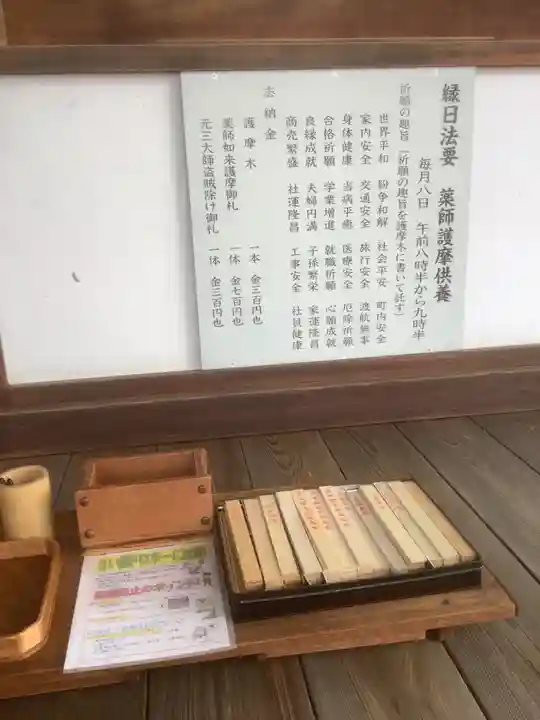 縁日法要　薬師護摩供養
毎月八日　午前八時半から九時半
祈願の趣旨（祈願の趣旨を護摩木に書いて託す）
世界平和　紛争和解　社会平安　町内安全
家内安全　交通安全　旅行安全　渡航無事
身体健康　当病平癒　医療安全　厄除祈願
合格祈願　学業増進　就職祈願　心願成就
良縁成就　夫婦円満　子孫繁栄　家運隆昌
商売繁盛　社運隆昌　工事安全　社員健康
志納金
護摩木　一本　金三百円也
薬師如来護摩御札　一体　金七百円也
元三大師盗賊除け御札　一体　金三百円也